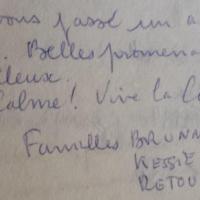 ous passé un a
. Belles promena
leux.
Calme! Vive la
Familles BRUNN
KESSIE
RETOU